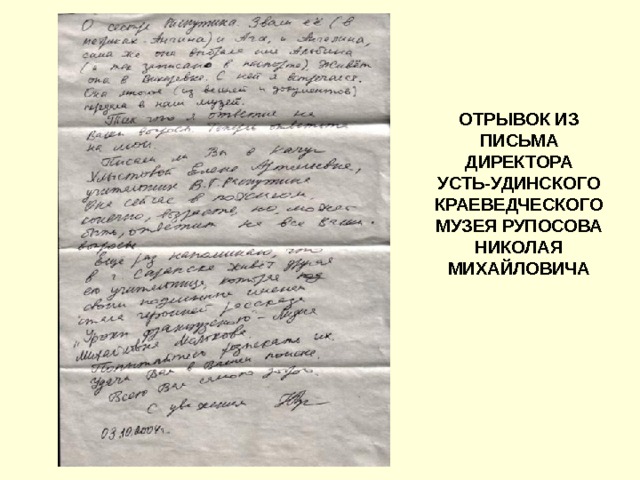 О сестре Распутина. Звали её (в
метриках - Ангина) и Ага, и Ангелина,
сама же она выбрала имя Альбина
(и так записано в паспорте). Живёт
она в Вихоревке. С ней я встречался.
Она многое (из вещей и документов)
передала в наш музей.
Так что я ответил на
Ваши вопросы. Теперь ответьте
на мои.
Писали ли Вы в
Елене Артемьевне,
учительнице В.Г. Распутина
Она сейчас в пожилом,
конечно, возрасте, но может
быть, ответит на все Ваши
вопросы.
Ещё раз напоминаю, что
в г. Саранске живёт другая
его учительница, которая под
своим подлинным именем
стала героиней рассказа
"Уроки французского" - Лидия
Михайловна Молокова.
Попытайтесь разыскать их.
Удачи Вам в Вашем поиске.
Всего Вам самого доброго.
С уважением
03.10.2004г.
ОТРЫВОК ИЗ
ПИСЬМА
ДИРЕКТОРА
УСТЬ-УДИНСКОГО
КРАЕВЕДЧЕСКОГО
МУЗЕЯ РУПОСОВА
НИКОЛАЯ
МИХАЙЛОВИЧА